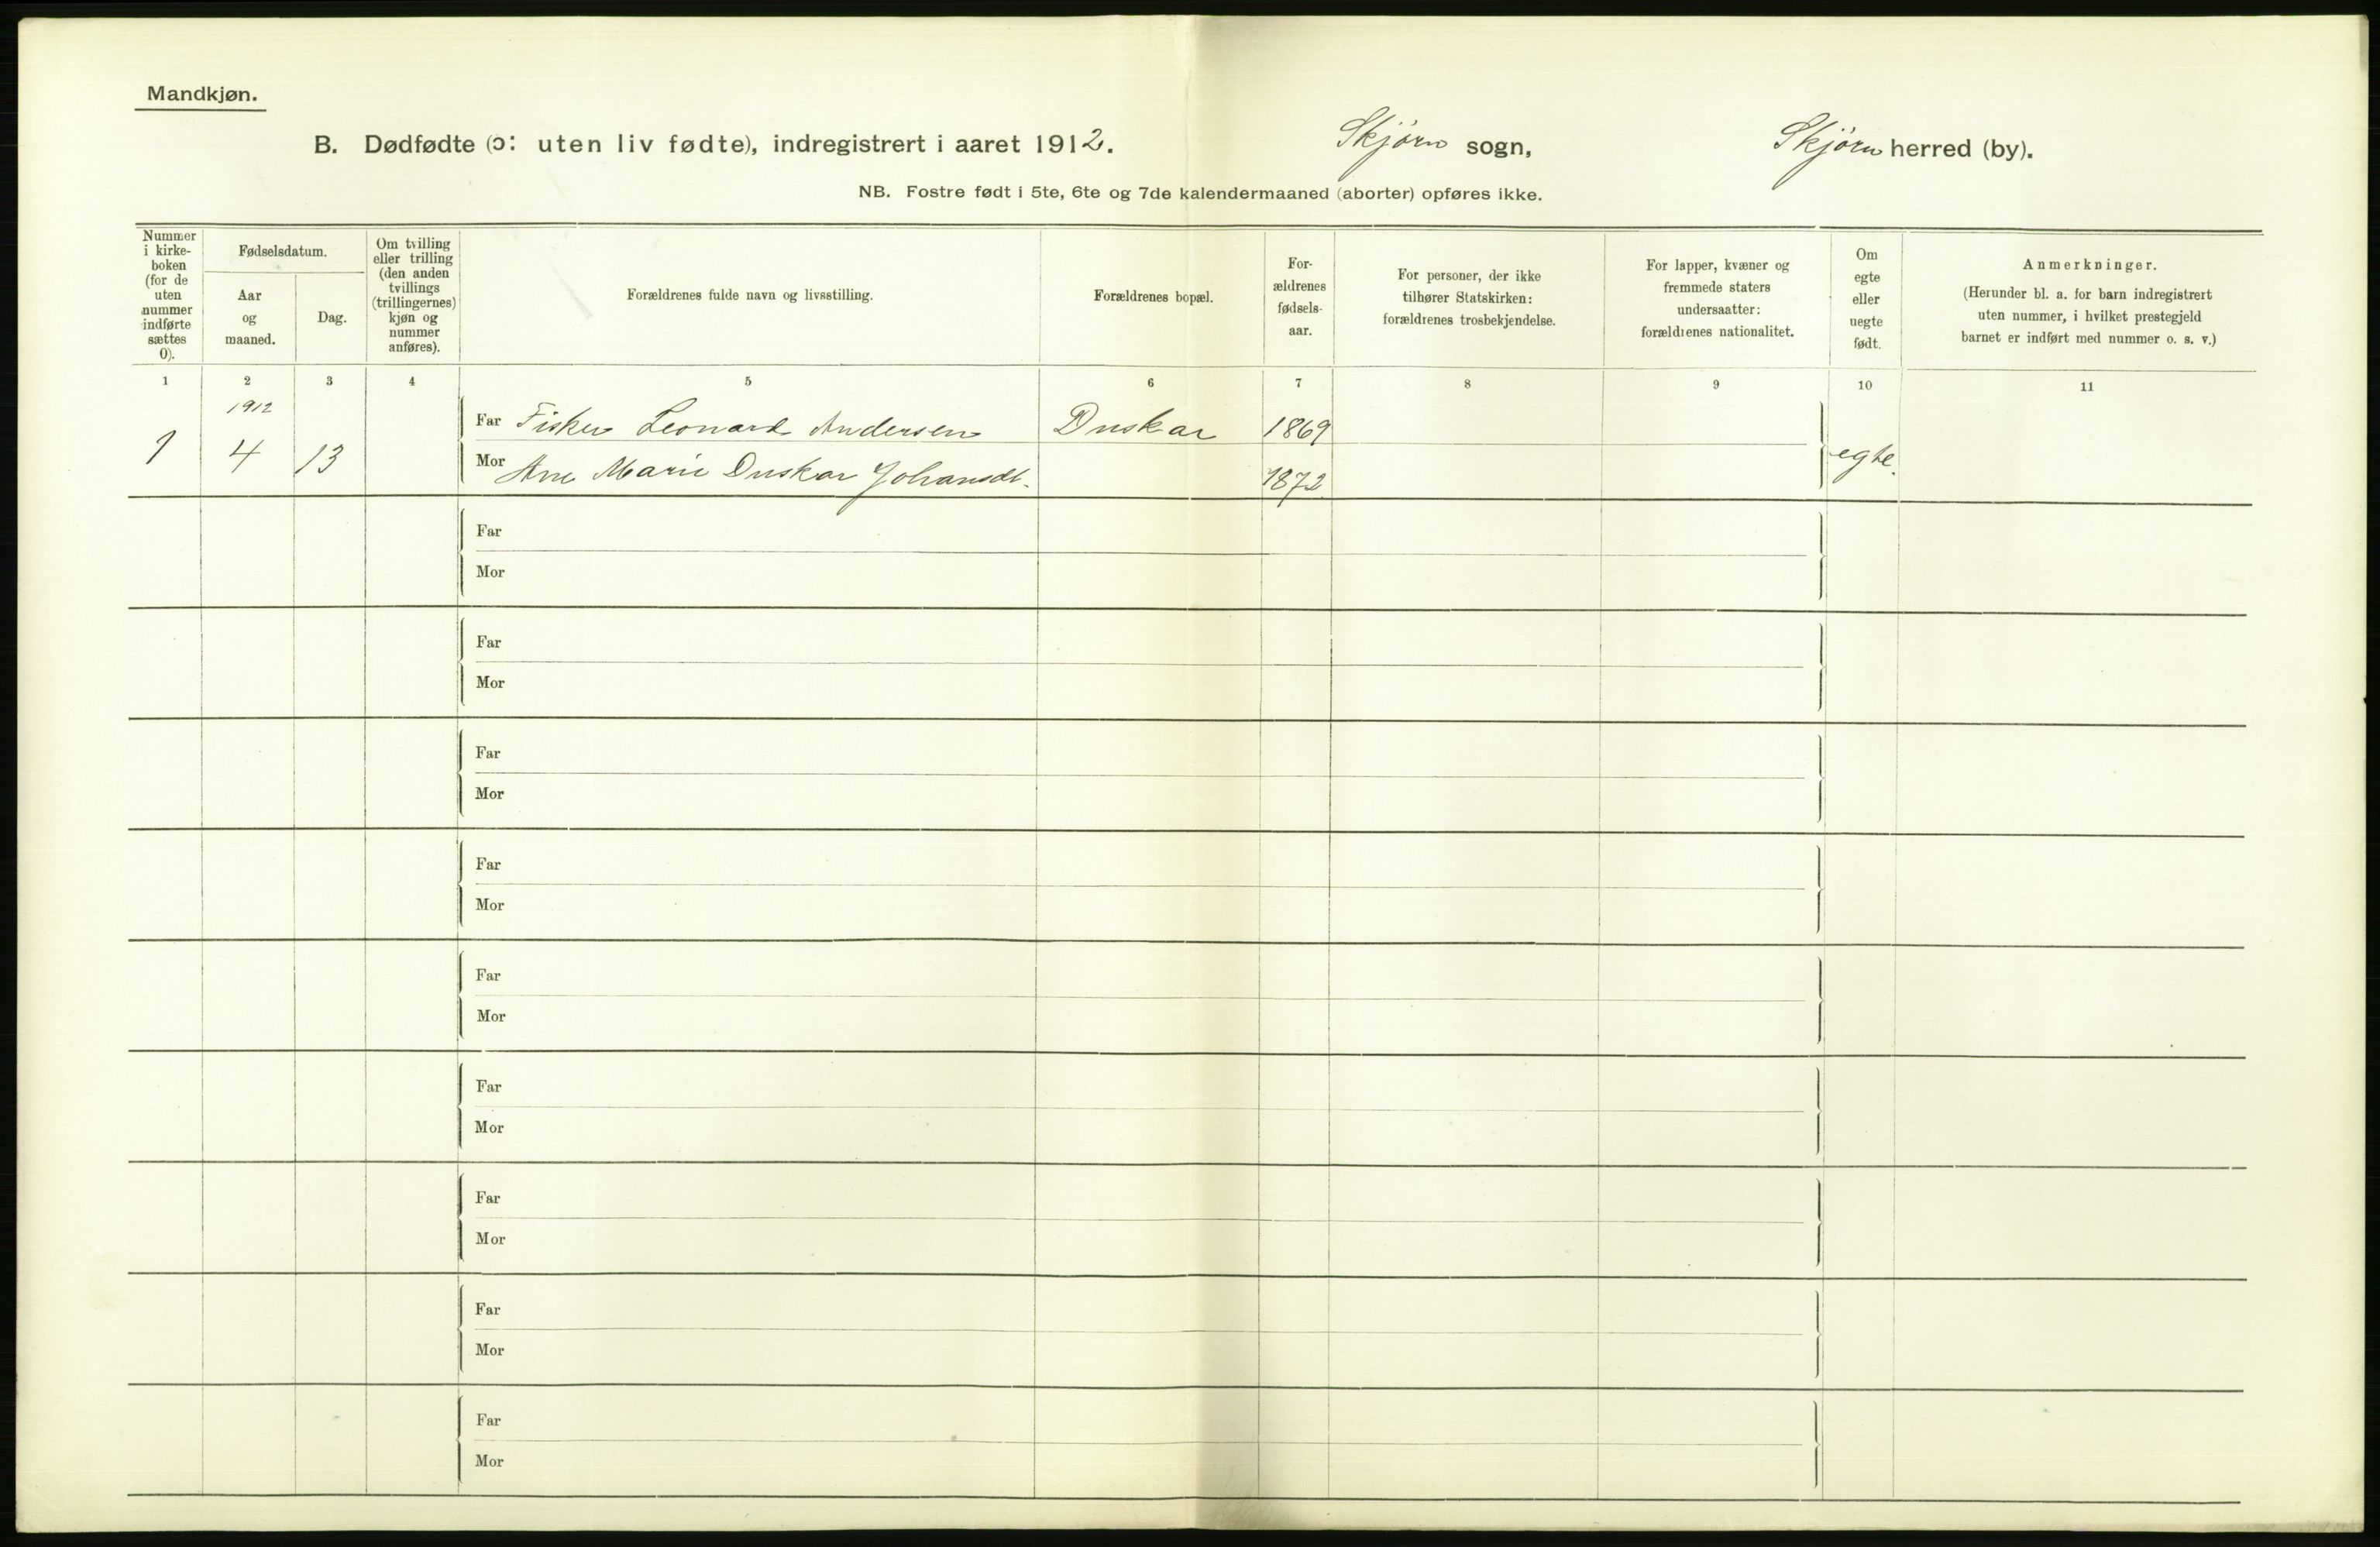 Mandkjøn.
B. Dødfødte (ɔ: uten liv fødte), indregistrert i aaret 1912. Skjørn sogn, Skjørn herred (by).
NB. Fostre født i 5te, 6te og 7de kalendermaaned (aborter) opføres ikke.
Nummer
i kirke-
boken
(for de
uten
nummer
indførte
sættes
0).
Fødselsdatum.
Aar
og
maaned.
Dag.
Om tvilling
eller trilling
(den anden
tvillings
(trillingernes)
kjøn og
nummer
anføres).
Forældrenes fulde navn og livsstilling.
Forældrenes bopæl.
For-
ældrenes
fødsels-
aar.
For personer, der ikke
tilhører Statskirken:
forældrenes trosbekjendelse.
For lapper, kvæner og
fremmede staters
undersaatter:
forældrenes nationalitet.
Om
egte
eller
uegte
født.
Anmerkninger.
(Herunder bl. a. for barn indregistrert
uten nummer, i hvilket prestegjeld
barnet er indført med nummer o. s. v.)
1 2 3 4 5 6 7 8 9 10 11
1912
1 4 13
Far Fisker Leonard Andersen Duskar 1869
Mor Ane Marie Duskar Johansdt. 1872
egte.
Far
Mor
Far
Mor
Far
Mor
Far
Mor
Far
Mor
Far
Mor
Far
Mor
Far
Mor
Far
Mor